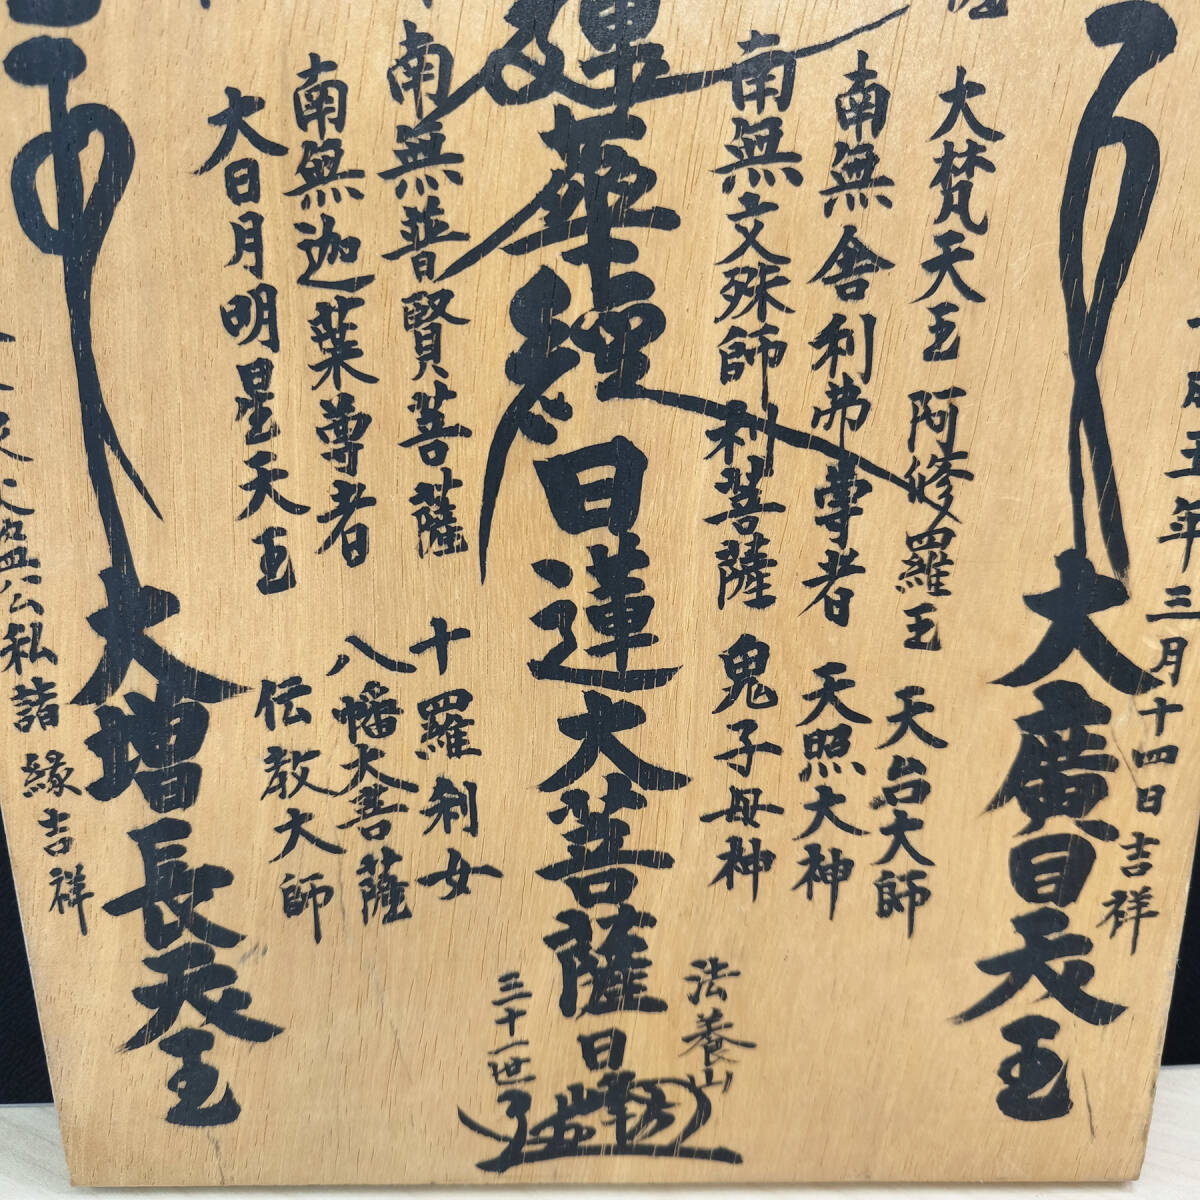 五年三月十四日吉祥
大廣目天王
大梵天王
阿修羅王
天台大師
南無舎利弗尊者
天照大神
南無文殊師利菩薩
鬼子母神
蓮華經
日蓮大菩薩
法養山
三十一世
日
南無普賢菩薩
十羅刹女
南無迦葉尊者
八幡大菩薩
大日月明星天王
伝教大師
大増長天王
私諸縁吉祥